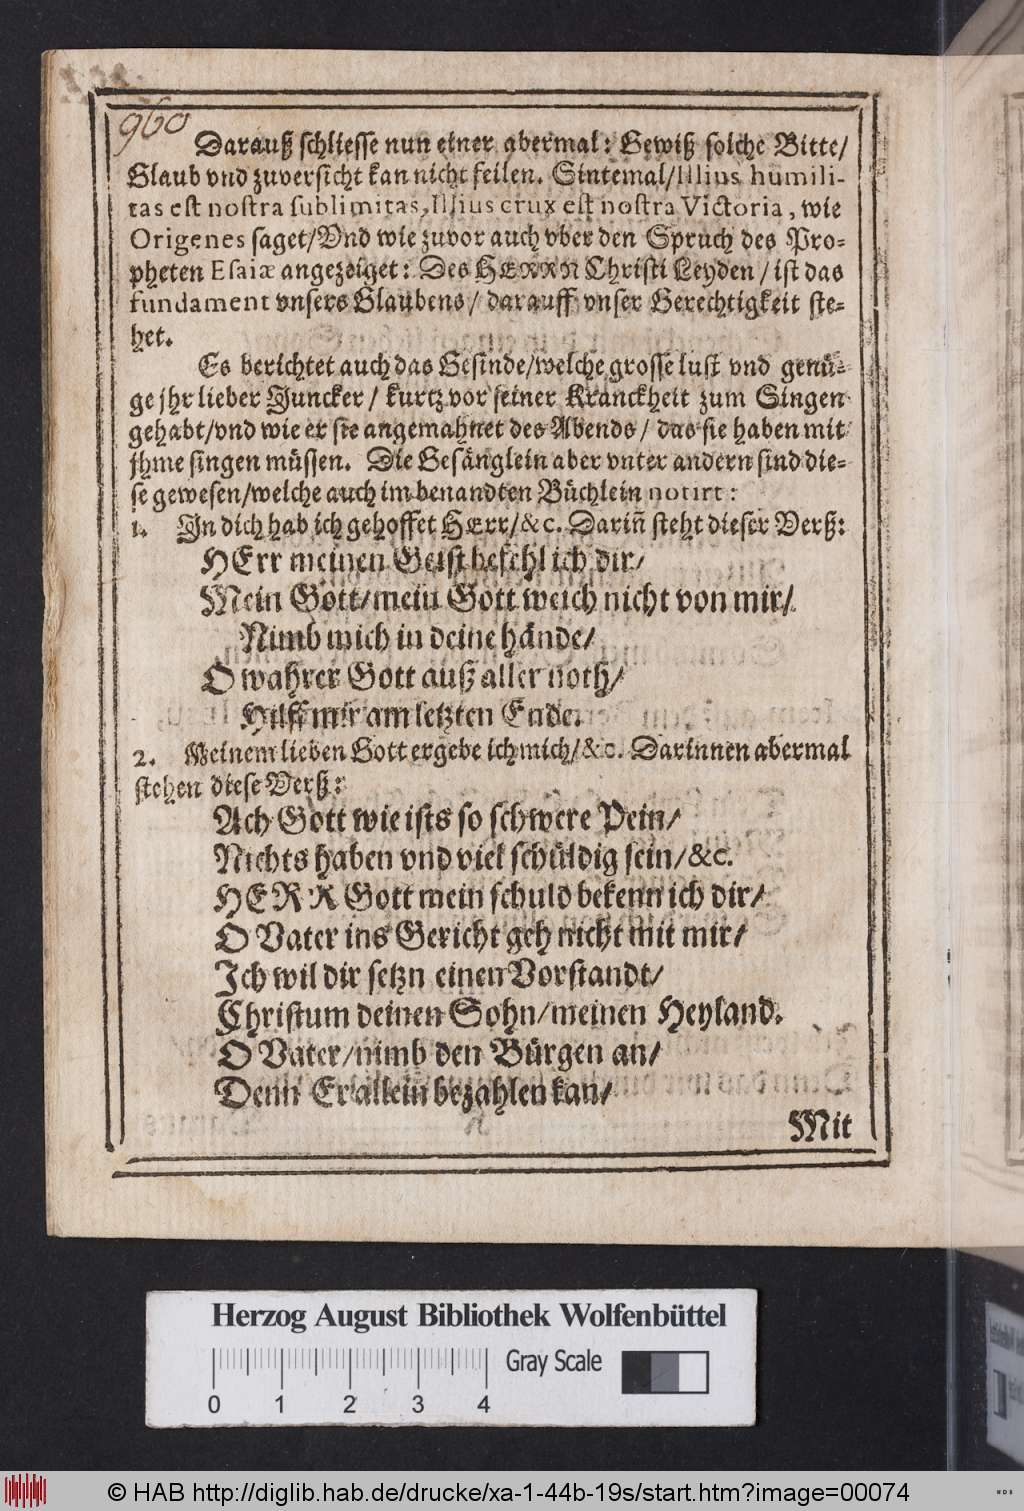 960
Darauß schliesse nun einer abermal: Gewiß solche Bitte/
Glaub vnd zuversicht kan nicht feilen. Sintemal/Illius humili-
tas est nostra sublimitas, Illius crux est nostra Victoria, wie
Origenes saget/Vnd wie zuvor auch vber den Spruch des Pro-
pheten Esaiæ angezeiget: Des HERRN Christi Leyden/ist das
fundament vnsers Glaubens/darauff vnser Gerechtigkeit ste-
het.
Es berichtet auch das Gesinde/welche grosse lust vnd genü-
ge jhr lieber Juncker/kurtz vor seiner Kranckheit zum Singen
gehabt/vnd wie er sie angemahnet des Abends/das sie haben mit
jhme singen müssen. Die Gesänglein aber vnter andern sind die-
se gewesen/welche auch im benandten Büchlein notirt:
1. In dich hab ich gehoffet HErr/&c. Dariñ steht dieser Verß:
HErr meinen Geist befehl ich dir/
Mein Gott/mein Gott weich nicht von mir/
Nimb mich in deine hände/
O wahrer Gott auß aller noth/
Hilff mir am letzten Ende.
2. Meinem lieben Gott ergebe ich mich/&c. Darinnen abermal
stehen diese Verß:
Ach Gott wie ists so schwere Pein/
Nichts haben vnd viel schüldig sein/&c.
HERR Gott mein schuld bekenn ich dir/
O Vater ins Gericht geh nicht mit mir/
Ich wil dir setzn einen Vorstandt/
Christum deinen Sohn/meinen Heyland.
O Vater/nimb den Bürgen an/
Denn Er allein bezahlen kan/
Mit
Herzog August Bibliothek Wolfenbüttel
Gray Scale
0 1 2 3 4
© HAB http://diglib.hab.de/drucke/xa-1-44b-19s/start.htm?image=00074